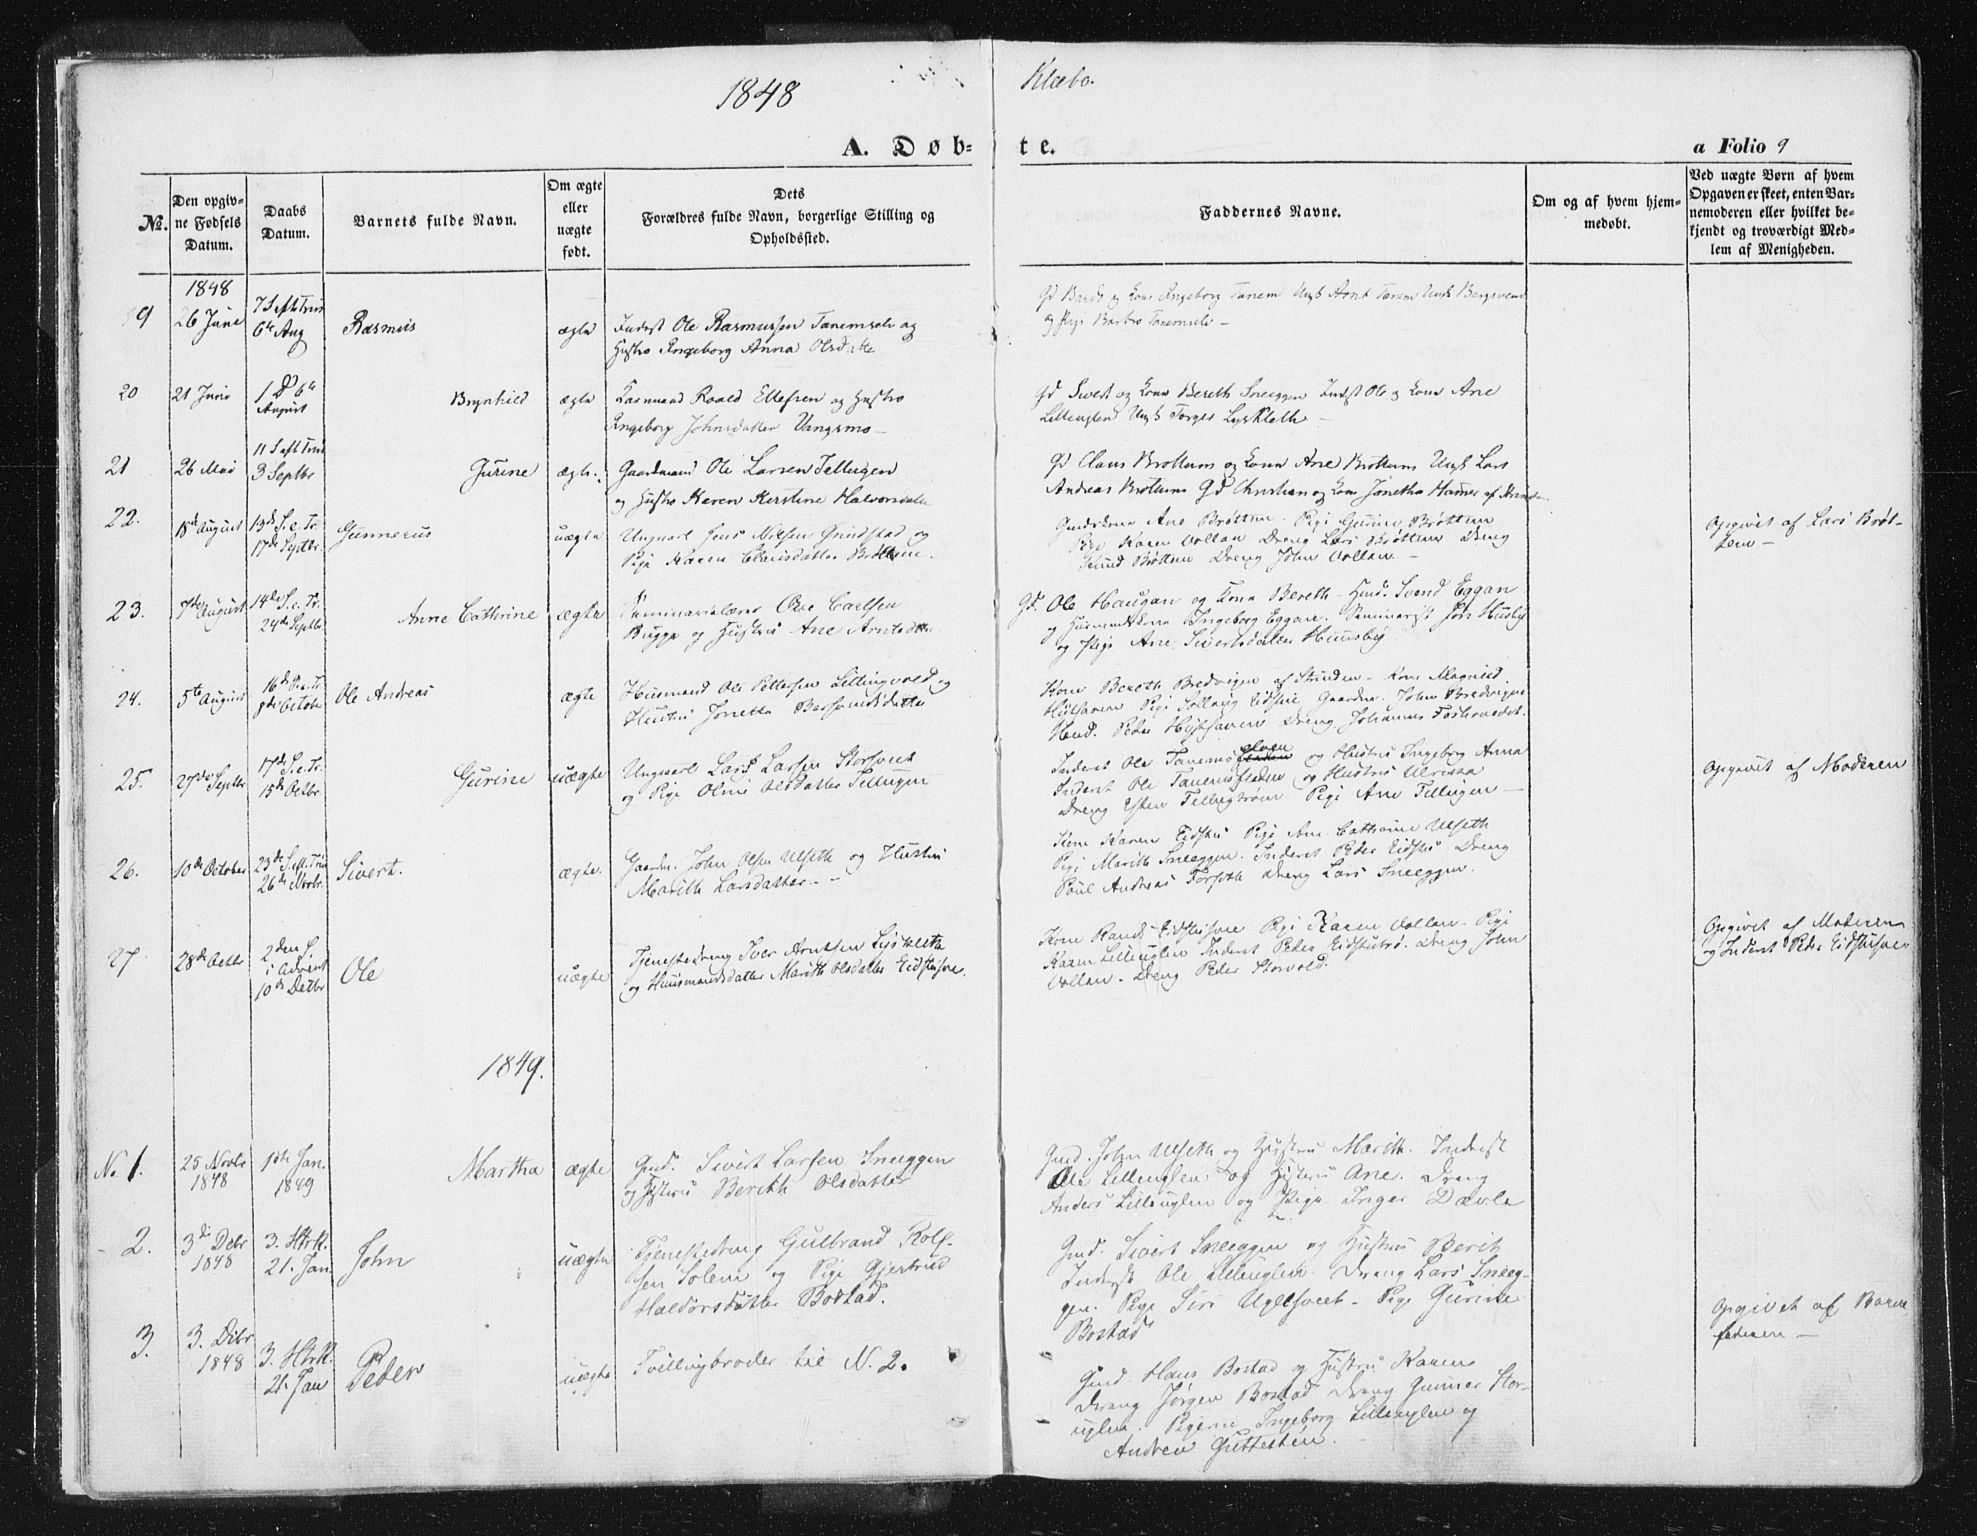 1848
Klæbo.
A. Døb-
te.
a Folio 9
No.
Den opgiv-
ne Fødsels
Datum.
Daabs
Datum.
Barnets fulde Navn.
Om ægte
eller
uægte
født.
Dets
Forældres fulde Navn, borgerlige Stilling og
Opholdssted.
Faddernes Navne.
Om og af hvem hjem-
medøbt.
Ved uægte Børn af hvem
Opgaven er skeet, enten Bar-
nemoderen eller hvilket be-
kjendt og troværdigt Med-
lem af Menigheden.
1848
9
26 Juni
6te Aug
Rasmus
ægte
Inderst Ole Rasmussen Tanemsele og
Hustro Ingeborg Anna Olsdatte
og Kone Ingeborg Tanem Ungk Arnt Tanem
20
21 Juni
August
Brynhild
ægte
Roald Ellefsen og Hustro
Ingeborg Johnsdatter Vangsmo
Gd Sivert og Kone Bereth Sneeggen Indst Ole og Kone Ane
Lilleuglen Ungk Torger Lysklett
21
26 Mai
3 Septbr
Gurine
ægte
Gaardmand Ole Larsen Tellugen
og Hustro Karen Kerstine Halvorsdatte
Gd Claus Brøttem og Kone Ane Brøttem Ungk Lars
Andreas Brøttem Gd Christian og Kone Jonetha Hamer af
22.
18de August
13de S. e. Tr.
17de Septbr.
Gunnerus
uægte
Ungkarl Jens Nilsen Grindstad og
Pige Karen Clausdatter Brøttem.
Gaardskone Ane Brøttem. Pige Gurine Brøttem
Pige Karen Vollan Dreng Lars Brøttem Dreng
Brøttem Dreng John Vollan.
Opgivet af Lars Brøt-
tem
23.
7de August
14de S. e. Tr.
24de Septbr
Anne Cathrine
ægte
Seminarielærer Ove Carlsen
Bugge og Hustru Ane Arntsdatter
Gd. Ole Haugan og Kone Bereth. Svend Eggan
og Kone Ingeborg Eggan. Seminarist Jon Husby
og Pige Ane Sivertsdatter Huusby
24.
5te August
16de S. e. Tr.
8de October
Ole Andreas
ægte
Husmand Ole Pettersen Lillingsved og
Hustru Jonetta Bersvendsdatte
Kone Bereth Bredvigen af Strinden. Kone Magnild
Pige Solloug Eidstu Gaardm. John Bredvigen
Peder Dreng Johannes
25.
27de Septbr
17de S. e. Tr.
15de Octbr.
Gurine
uægte
Ungkarl Lars Larsen Storsveet
og Pige Oline Olsdatter Tellugen
Inderst Ole Tanem og Hustru Ingeborg Anna
Inderst Ole Tanemsfladen og Hustru Ulrikka
Dreng Esten Pige Ane Tellugen
Opgivet af Moderen
26.
10de October
26de Novbr.
Sivert.
ægte
Gaardm. John Olsen Ulseth og Hustru
Marith Larsdatter
Kone Karen Eidstu Pige Ane Cathrine Ulseth
Pige Marith Sneeggen. Inderst Peder Eidstu Dreng
Poul Andreas Forseth Dreng Lars Sneeggen.
27
28de Octbr
2den S.
i Advent
10de Decbr
Ole
uægte
Tjenestedreng Iver Arntsen Lysklett
og Huusmandsdatter Marith Olsdatter Eidstusve.
Kone Randi Eidstusve Pige Karen Vollan. Pige
Karen Lilleuglen Inderst Peder Eidstu Dreng John
Vollan. Dreng Peder Storvold.
Opgivet af Moderen
og Inderst Peder Eidstusve
1849.
No 1.
25 Novbr
1848
1ste Jan.
1849
Martha
ægte
Gmd. Sivert Larsen Sneeggen
og Hustru Berith Olsdatter
Gmd. John Ulseth og Hustru Marith. Inderst
Ole Lilleuglen og Hustru Ane. Dreng
Anders Lilleuglen og Pige Inger Davle
2.
3die Debr
1848
3. Htrk.
21. Jan
John
uægte
Tjenestedreng Gulbrand Rolf-
sen Solem og Pige Gjertrud
Haldorsdatter Bostad.
Gmd. Sivert Sneeggen og Hustru Berit
Inderst Ole Lilleuglen. Dreng Lars Sneeg-
gen. Pige Siri Uglesveet. Pige Gurine
Bostad
Opgivet af Barne
faderen
3.
3. Dcbr
1848
3. Htrk.
21. Jan
Peder
uægte
Tvillingbroder til N. 2.
Gmd. Hans Bostad og Hustru Karen
Dreng Jørgen Bostad Dreng Gunner Stor-
uglen. Pigerne Ingeborg Lilleuglen og
Andrea Guttesten.